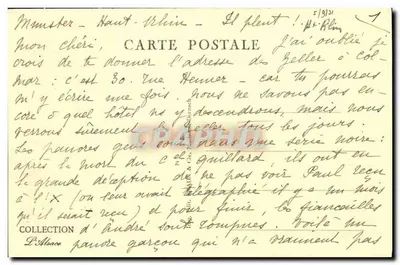 Munster - Haut-Rhin - Il pleut !
5/9/31
Ht Rhin
1
mon chéri,
CARTE POSTALE
J'ai oublié je
crois de te donner l'adresse des Zeller à Col-
mar : c'est 30. rue Henner - car tu pourras
m'y écrire une fois. nous ne savons pas en-
core à quel hôtel ns y descendrons, mais nous
verrons sûrement tous les jours.
Les pauvres gens, une série noire :
après la mort du Cel quillard, ils ont eu
la grande déception de ne pas voir Paul reçu
à l'X (on leur avait télégraphié il y a un mois
qu'il serait reçu) et pour finir, les fiançailles
COLLECTION
d'André sont rompues. Voilà un
L'Alsace
pauvre garçon qui n'a vraiment pas